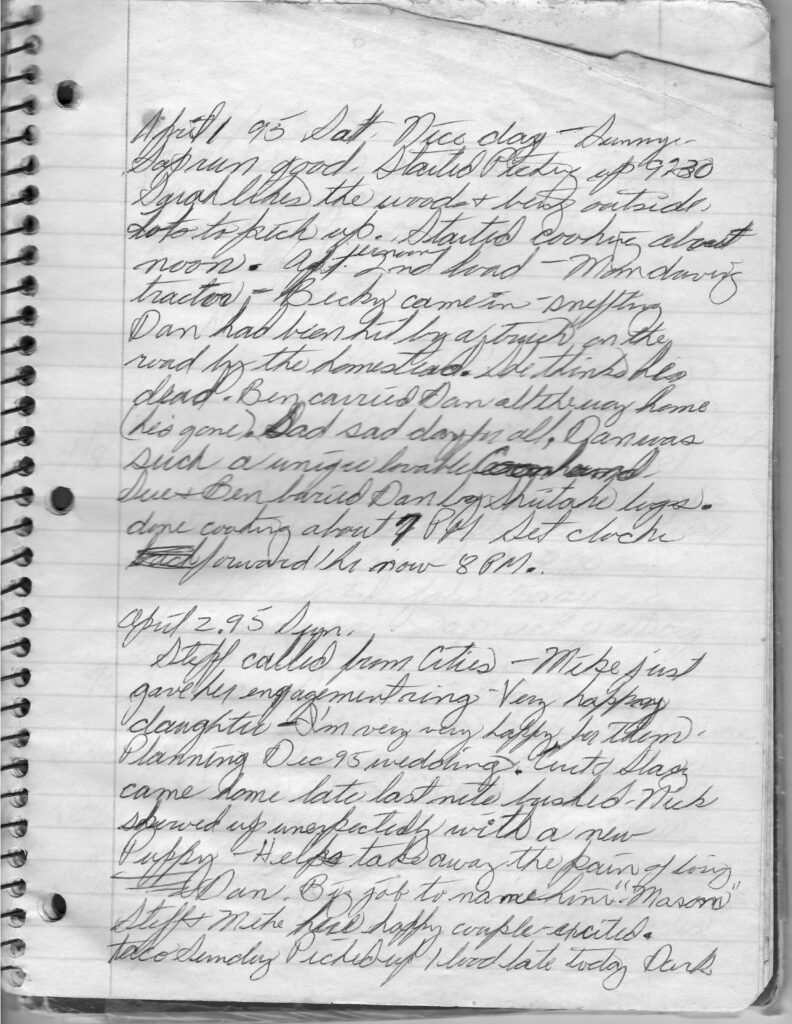 April 1 95 Sat. Nice day - Sunny -
Sap run good. Started Picking up 9:30
Sarah likes the woods & being outside.
Lots to pick up. Started cooking about
noon. Afternoon 2nd load - Mom driving
tractor - Becky came in - snifting
Dan had been hit by a truck on the
road by the homestead. She thinks he's
dead. Ben carried Dan all the way home
(he's gone). Sad sad day for all, Dan was
such a unique lovable Coonhound
Sue & Ben buried Dan by shiitake logs.
done cooking about 7 PM Set clocks
forward 1 hr now 8 PM.
April 2. 95 Sun.
Steff called from Cities - Mike just
gave her engagement ring - Very happy
daughter - I'm very very happy for them.
Planning Dec 95 wedding. Curt & Stacy
came home late last nite bushed - Nick
showed up unexpectedly with a new
Puppy - Helps take away the pain of losing
Dan. Big job to name him "Mason"
Steff & Mike here happy couple - excited.
taco Sunday Picked up 1 load late today Dark